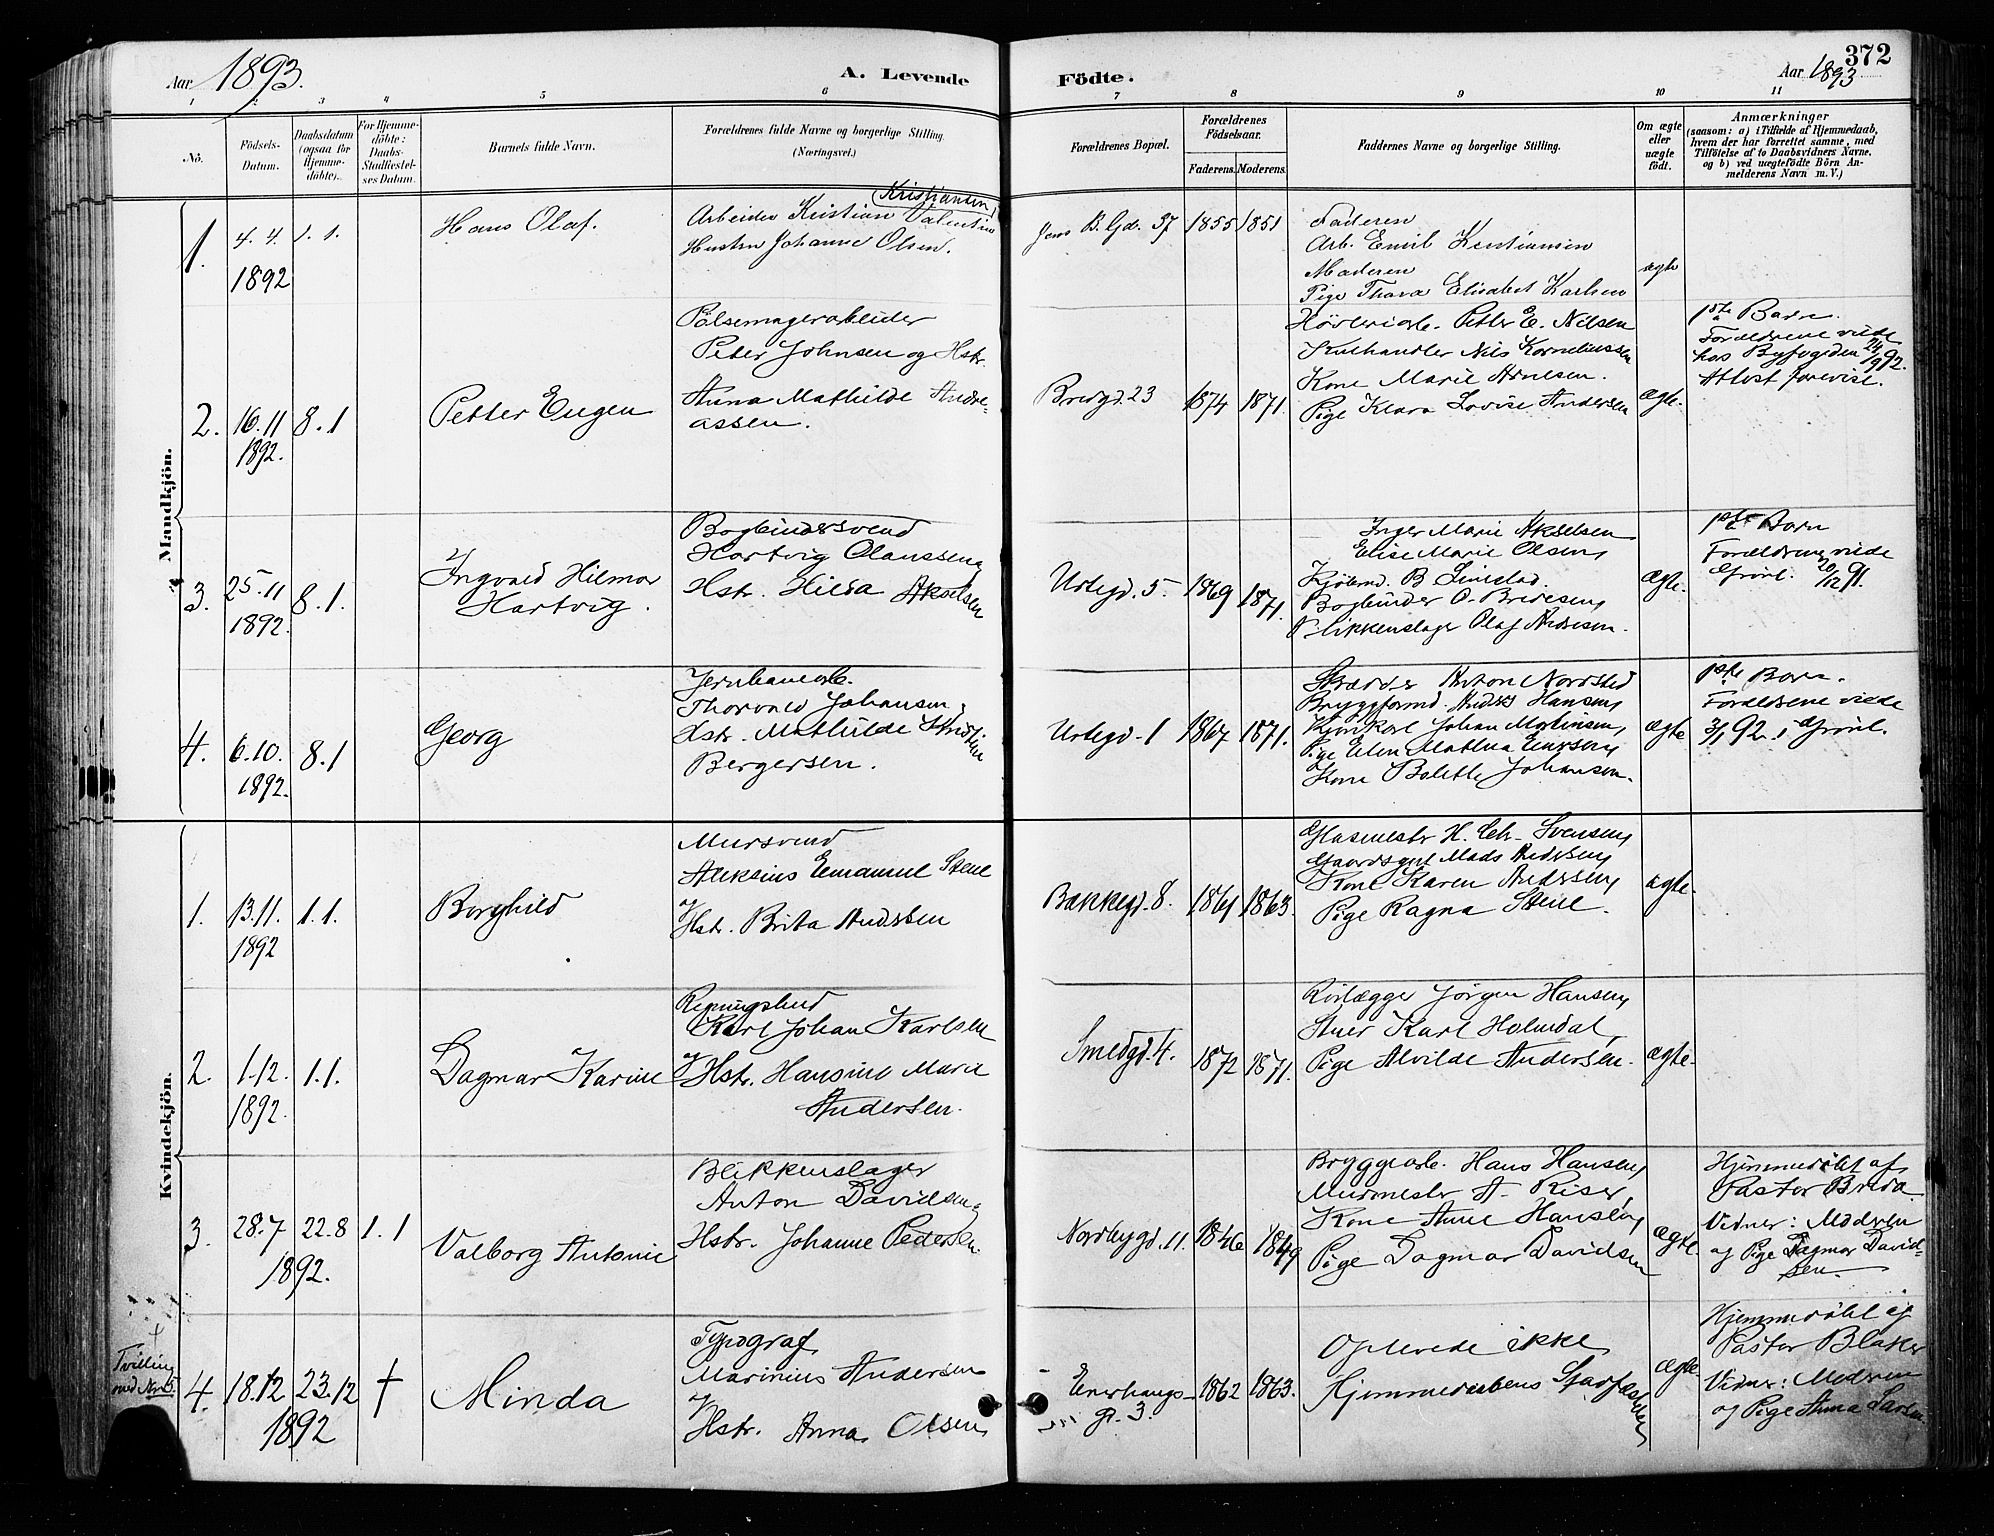 372
Aar 1893.
A. Levende Födte.
Aar 1893
1 2 3 4 5 6 7 8 9 10 11
Nô.
Födsels-Datum.
Daabsdatum (ogsaa for Hjemmedöbte).
For Hjemmedöbte: Daabs-Stadfæstelses Datum.
Barnets fulde Navn.
Forældrenes fulde Navne og borgerlige Stilling.
(Næringsvei.)
Forældrenes Bopæl.
Forældrenes Födselsaar.
Faderens. Moderens.
Faddernes Navne og borgerlige Stilling.
Om ægte eller uægte födt.
Anmærkninger
(saasom: a) i Tilfælde af Hjemmedaab, hvem der har forrettet samme, med Tilföielse af to Daabsvidners Navne, og b) ved uægtefödte Börn Anmelderens Navn m. V.)
Mandkjön.
1. 4.4 1892 1.1.
Hans Olaf.
Arbeider Kristian Valentin Kristiansen
Hustru Johanne Olsen.
Jens B. Gd. 37 1855 1851
Faderen
Arb. Emil Kristiansen
Moderen
Pige Thora Elisabet Karlsen
ægte
2. 16.11 1892. 8.1
Petter Eugen
Pölsemagerarbeider
Peter Johnsen og Hstr.
Anna Mathilde Andreassen.
Bredgd. 23 1874 1871.
Høvleriarb. Petter E. Nilsen
Kulhandler Nils Korneliussen
Kone Marie Arnesen.
Pige Klara Lovise Andersen
ægte.
1ste Barn.
Forældrene viede
hos Byfogden 24/9 92.
Attest forevist.
3. 25.11 1892. 8.1.
Ingvald Hilmar
Hartvig.
Bogbindersvend
Hartvig Olaussen
Hstr. Hilda Akselsen
Urtegd. 5. 1869 1871.
Inger Marie Akselsen
Elise Marie Olsen,
Kjøbmd. B. Simstad.
Bogbinder O. Bredesen,
Blikkenslager Olaf Andresen.
ægte.
1ste Barn
Forældrene viede
Grönl. 20/12 91.
4. 6.10. 1892. 8.1
Georg
Jernbanearb.
Thorvald Johansen,
Hstr. Mathilde Kristine
Bergersen.
Urtegd. 1 1867 1871.
Skrædder Anton Nordsted
Bryggformd. Anders Hansen,
Kjørekarl Johan Mortinsen,
Pige Elen Mathea Enersen,
Kone Bolette Johansen.
ægte
1ste Barn.
Forældrene viede
3/1 92. i Grönl.
Kvindekjön.
1. 13.11. 1892 1.1.
Borghild
Mursvend
Aleksius Emanuel Stene
Hstr. Brita Andersen
Bakkegd. 8. 1861 1863.
Glasmester H. Chr. Svensen,
Gaardsgut Mads Andersen,
Kone Karen Andersen,
Pige Ragna Stene.
ægte.
2. 1.12. 1892. 1.1.
Dagmar Karine
Karl Johan Karlsen
Hstr. Hansine Marie
Andersen.
Smedgd. 4. 1872 1871.
Rörlægger Jörgen Hansen,
Stuer Karl Holmdal,
Pige Alvilde Andersen.
ægte.
3. 28.7 22.8 1892. 1.1
Valborg Antonie
Blikkenslager
Anton Davidsen
Hstr. Johanne Pedersen
Nordbygd. 11. 1846 1849
Bryggearb. Hans Hansen,
Murmester A. Riser,
Kone Anne Hansen,
Pige Dagmar Davidsen
ægte.
Hjemmedöbt af
Pastor Breda
Vidner: Moderen
og Pige Dagmar Davidsen.
Tvilling
med No 5.
4. 18.12 23.12 1892 †
Minda
Typograf
Marinius Andersen
Hstr. Anna Olsen
Enerhaugsgd. 3. 1862 1863.
Oplevede ikke
Hjemmedaabens Stadfæstelse
ægte.
Hjemmedöbt af
Pastor Blaker
Vidner: Moderen
og Pige Anna Larsen